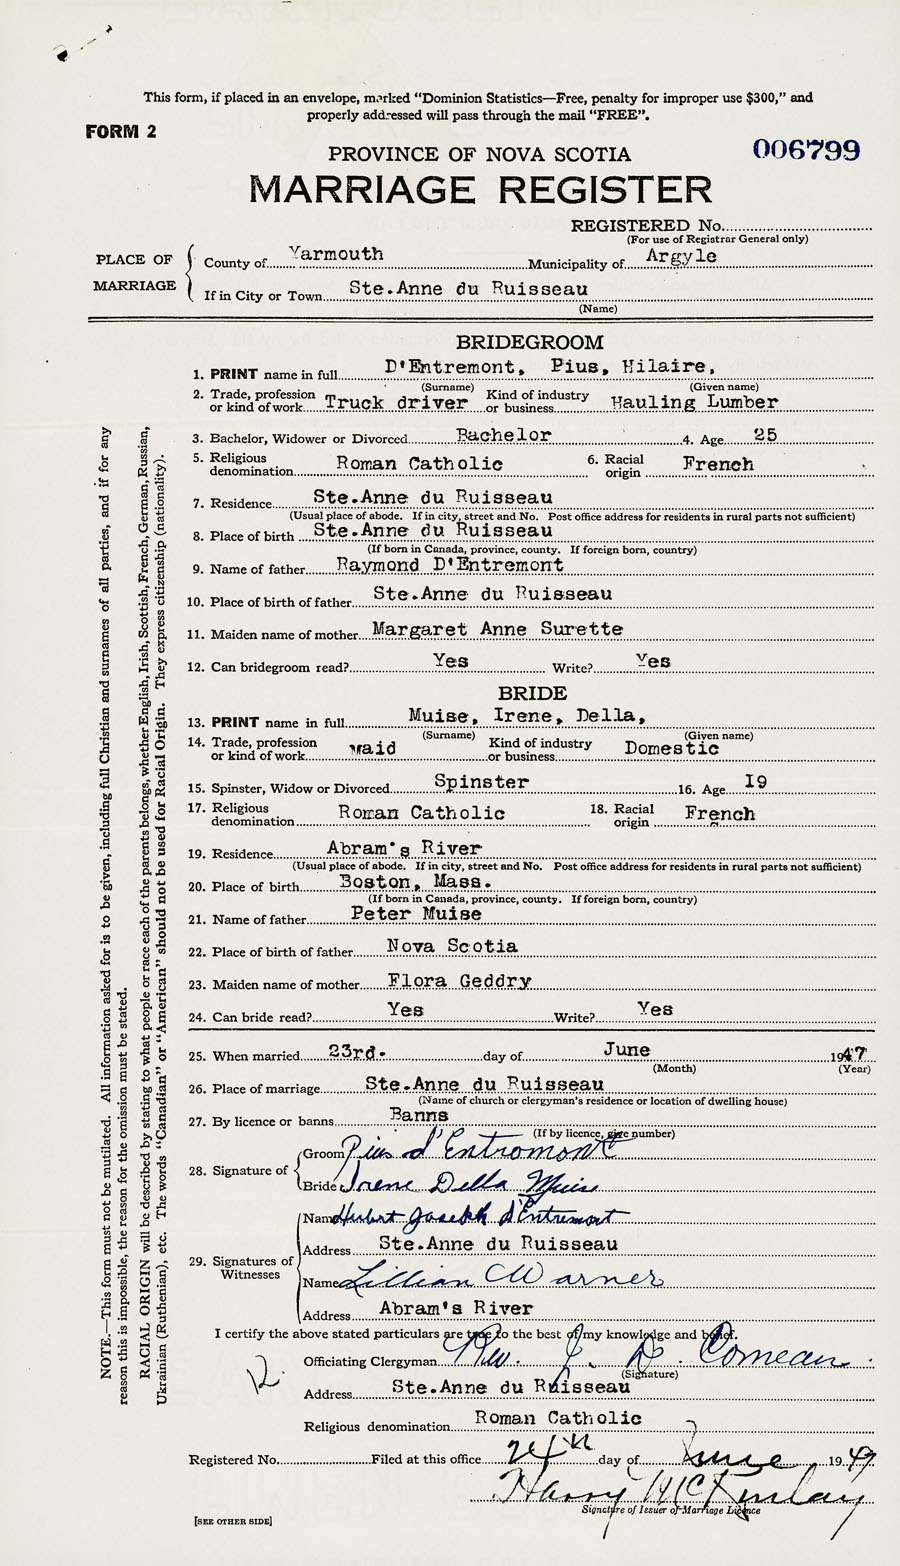 This form, if placed in an envelope, marked “Dominion Statistics—Free, penalty for improper use $300,” and
properly addressed will pass through the mail “FREE”.
FORM 2
006799
PROVINCE OF NOVA SCOTIA
MARRIAGE REGISTER
REGISTERED No.
(For use of Registrar General only)
PLACE OF MARRIAGE
County of Yarmouth Municipality of Argyle
If in City or Town Ste.Anne du Ruisseau
(Name)
BRIDEGROOM
1. PRINT name in full D'Entremont, Pius, Hilaire,
(Surname) (Given name)
2. Trade, profession or kind of work Truck driver Kind of industry or business Hauling Lumber
3. Bachelor, Widower or Divorced Bachelor 4. Age 25
5. Religious denomination Roman Catholic 6. Racial origin French
7. Residence Ste.Anne du Ruisseau
(Usual place of abode. If in city, street and No. Post office address for residents in rural parts not sufficient)
8. Place of birth Ste.Anne du Ruisseau
(If born in Canada, province, county. If foreign born, country)
9. Name of father Raymond D'Entremont
10. Place of birth of father Ste.Anne du Ruisseau
11. Maiden name of mother Margaret Anne Surette
12. Can bridegroom read? Yes Write? Yes
BRIDE
13. PRINT name in full Muise, Irene, Della,
(Surname) (Given name)
14. Trade, profession or kind of work maid Kind of industry or business Domestic
15. Spinster, Widow or Divorced Spinster 16. Age I9
17. Religious denomination Roman Catholic 18. Racial origin French
19. Residence Abram's River
(Usual place of abode. If in city, street and No. Post office address for residents in rural parts not sufficient)
20. Place of birth Boston, Mass.
(If born in Canada, province, county. If foreign born, country)
21. Name of father Peter Muise
22. Place of birth of father Nova Scotia
23. Maiden name of mother Flora Geddry
24. Can bride read? Yes Write? Yes
25. When married 23rd. day of June 1947
(Month) (Year)
26. Place of marriage Ste.Anne du Ruisseau
(Name of church or clergyman's residence or location of dwelling house)
27. By licence or banns Banns
(If by licence, give number)
28. Signature of
Groom Pius d'Entremont
Bride Irene Della Muise
29. Signatures of Witnesses
Name Hubert Joseph d'Entremont
Address Ste.Anne du Ruisseau
Name Lillian Warner
Address Abram's River
I certify the above stated particulars are true to the best of my knowledge and belief.
Officiating Clergyman Rev. J. D. Comeau
(Signature)
12
Address Ste.Anne du Ruisseau
Religious denomination Roman Catholic
Registered No. Filed at this office 24th day of June 1947
Harry McKinlay
Signature of Issuer of Marriage Licence
[SEE OTHER SIDE]
NOTE.—This form must not be mutilated. All information asked for is to be given, including full Christian and surnames of all parties, and if for any
reason this is impossible, the reason for the omission must be stated.
RACIAL ORIGIN will be described by stating to what people or race each of the parents belongs, whether English, Irish, Scottish, French, German, Russian,
Ukrainian (Ruthenian), etc. The words “Canadian” or “American” should not be used for Racial Origin. They express citizenship (nationality).